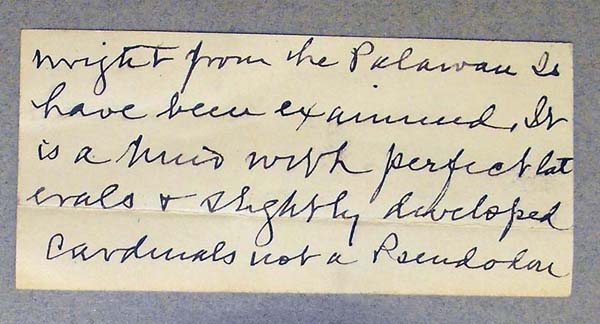 Wright from the Palawan Is
have been examined. It
is a Unio with perfect lat
erals & slightly developed
Cardinals not a Pseudodon